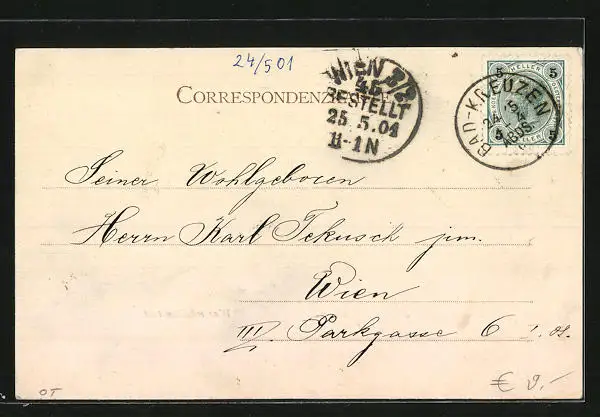 24/5 01
CORRESPONDENZ
WIEN 3/2
45
BESTELLT
25.5.01
11-1N
5 HELLER 5
5 5
BAD-KREUZEN
24 5
ABDS
Seiner Wohlgeboren
Herrn Karl Tekusch jun.
Wien
III. Parkgasse 6
OT
€ 9,-